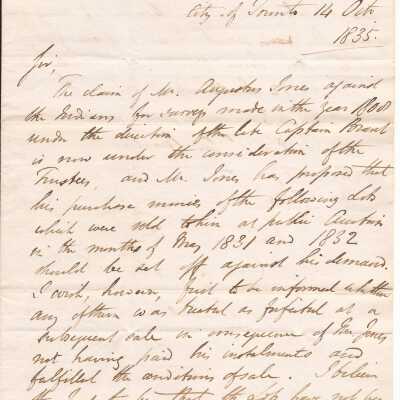 City of Toronto 14 Oct
1835.
Sir,
The claim of Mr. Augustus Jones against
the Indians for surveys made in the year 1808
under the direction of the late Captain Brant
is now under the consideration of the
Trustees, and Mr. Jones has proposed that
his purchase monies of the following Lots
which were sold to him at public Auction
in the months of May 1831 and 1832
should be set off against his demand.
I wish, however, first to be informed whether
any of them was treated as forfeited at a
subsequent sale in consequence of Jones
not having paid his instalments and
fulfilled the conditions of sale. I believe
the to be that the lots have not been